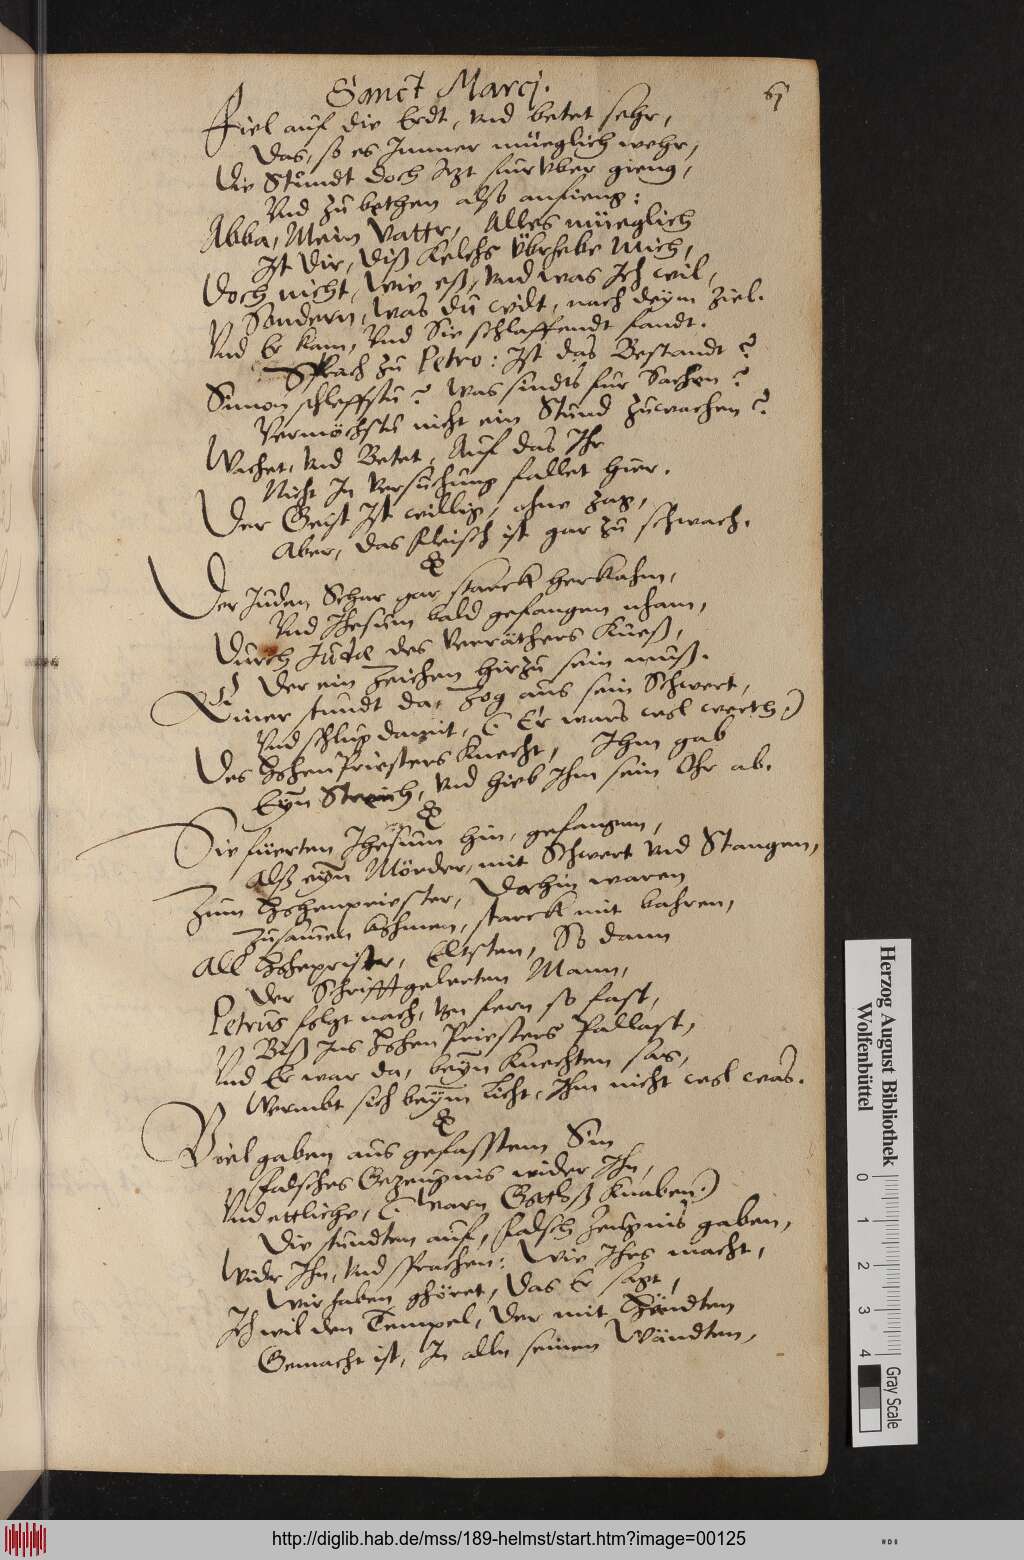 Sanct Marcj.
61
Fiel auf die Erdt, vnd betet sehr,
Das, so es Immer müeglich wehr,
Die Stundt doch Itzt fur vber gieng,
Vnd zu bethen alsso anfieng:
Abba, Mein Vattr, Alles müeglich
Ist dir, diß Kelchs vbrhebe Mich,
Doch nicht, wie eß, vnd was Ich wil,
Sondern, was du wildt, nach deym Ziel.
Vnd Er kam, Vnd Sie schlaffendt fandt.
Sprach zu Petro: Ist das Bestandt?
Simon schleffstu? Was sindts fur Sachen?
Vermöchstu nicht ein Stund zuwachen?
Wachet, vnd Betet, Auf das Ihr
Nicht In versuchung fallet hier.
Der Geist Ist willig, ohne Zag,
Aber, das fleisch ist gar zu schwach.
Der Juden Schar gar starck herkahm,
Vnd Jhesum bald gefangen nham,
Durch Judæ des verräthers Kueß,
Der ein Zeichen hirzu sein muß.
Einer stundt da, Zog aus sein Schwert,
Vnd schlug damit, (: Er wars wol werth:)
Des HohenPriesters Knecht, Ihm gab
Eyn Streich, vnd hieb Ihm sein Ohr ab.
Sie fuerten Jhesum hin, gefangen,
Alß eyn Mörder, mit Schwert vnd Stangen,
Zum Hohenpriester, Dahin waren
Zusamen kohmen, starck mit bahren,
All Hohepristr, Eltsten, So dann
Der Schrifftgelerten Mann,
Petrus folgt nach, von fern so fast,
Biß Ins HohenPriesters Pallast,
Vnd Er war da, beyn Knechten sas,
Wermbt sich beym Licht, Ihm nicht wol was.
Viel gaben aus gefasstem Sin
falsches Gezeugnis wider Ihn,
Vnd ettliche, (: warn Gottloß Knaben:)
Die stundten auf, falsch Zeugnis gaben,
Wider Ihn, vnd sprachen: Wie Ihrs macht,
Wir haben ghöret, das Er sagt,
Ich wil den Tempel, der mit Händten
Gemacht ist, In alln seinen Wändten,
Herzog August Bibliothek
Wolfenbüttel
0 1 2 3 4
Gray Scale
http://diglib.hab.de/mss/189-helmst/start.htm?image=00125